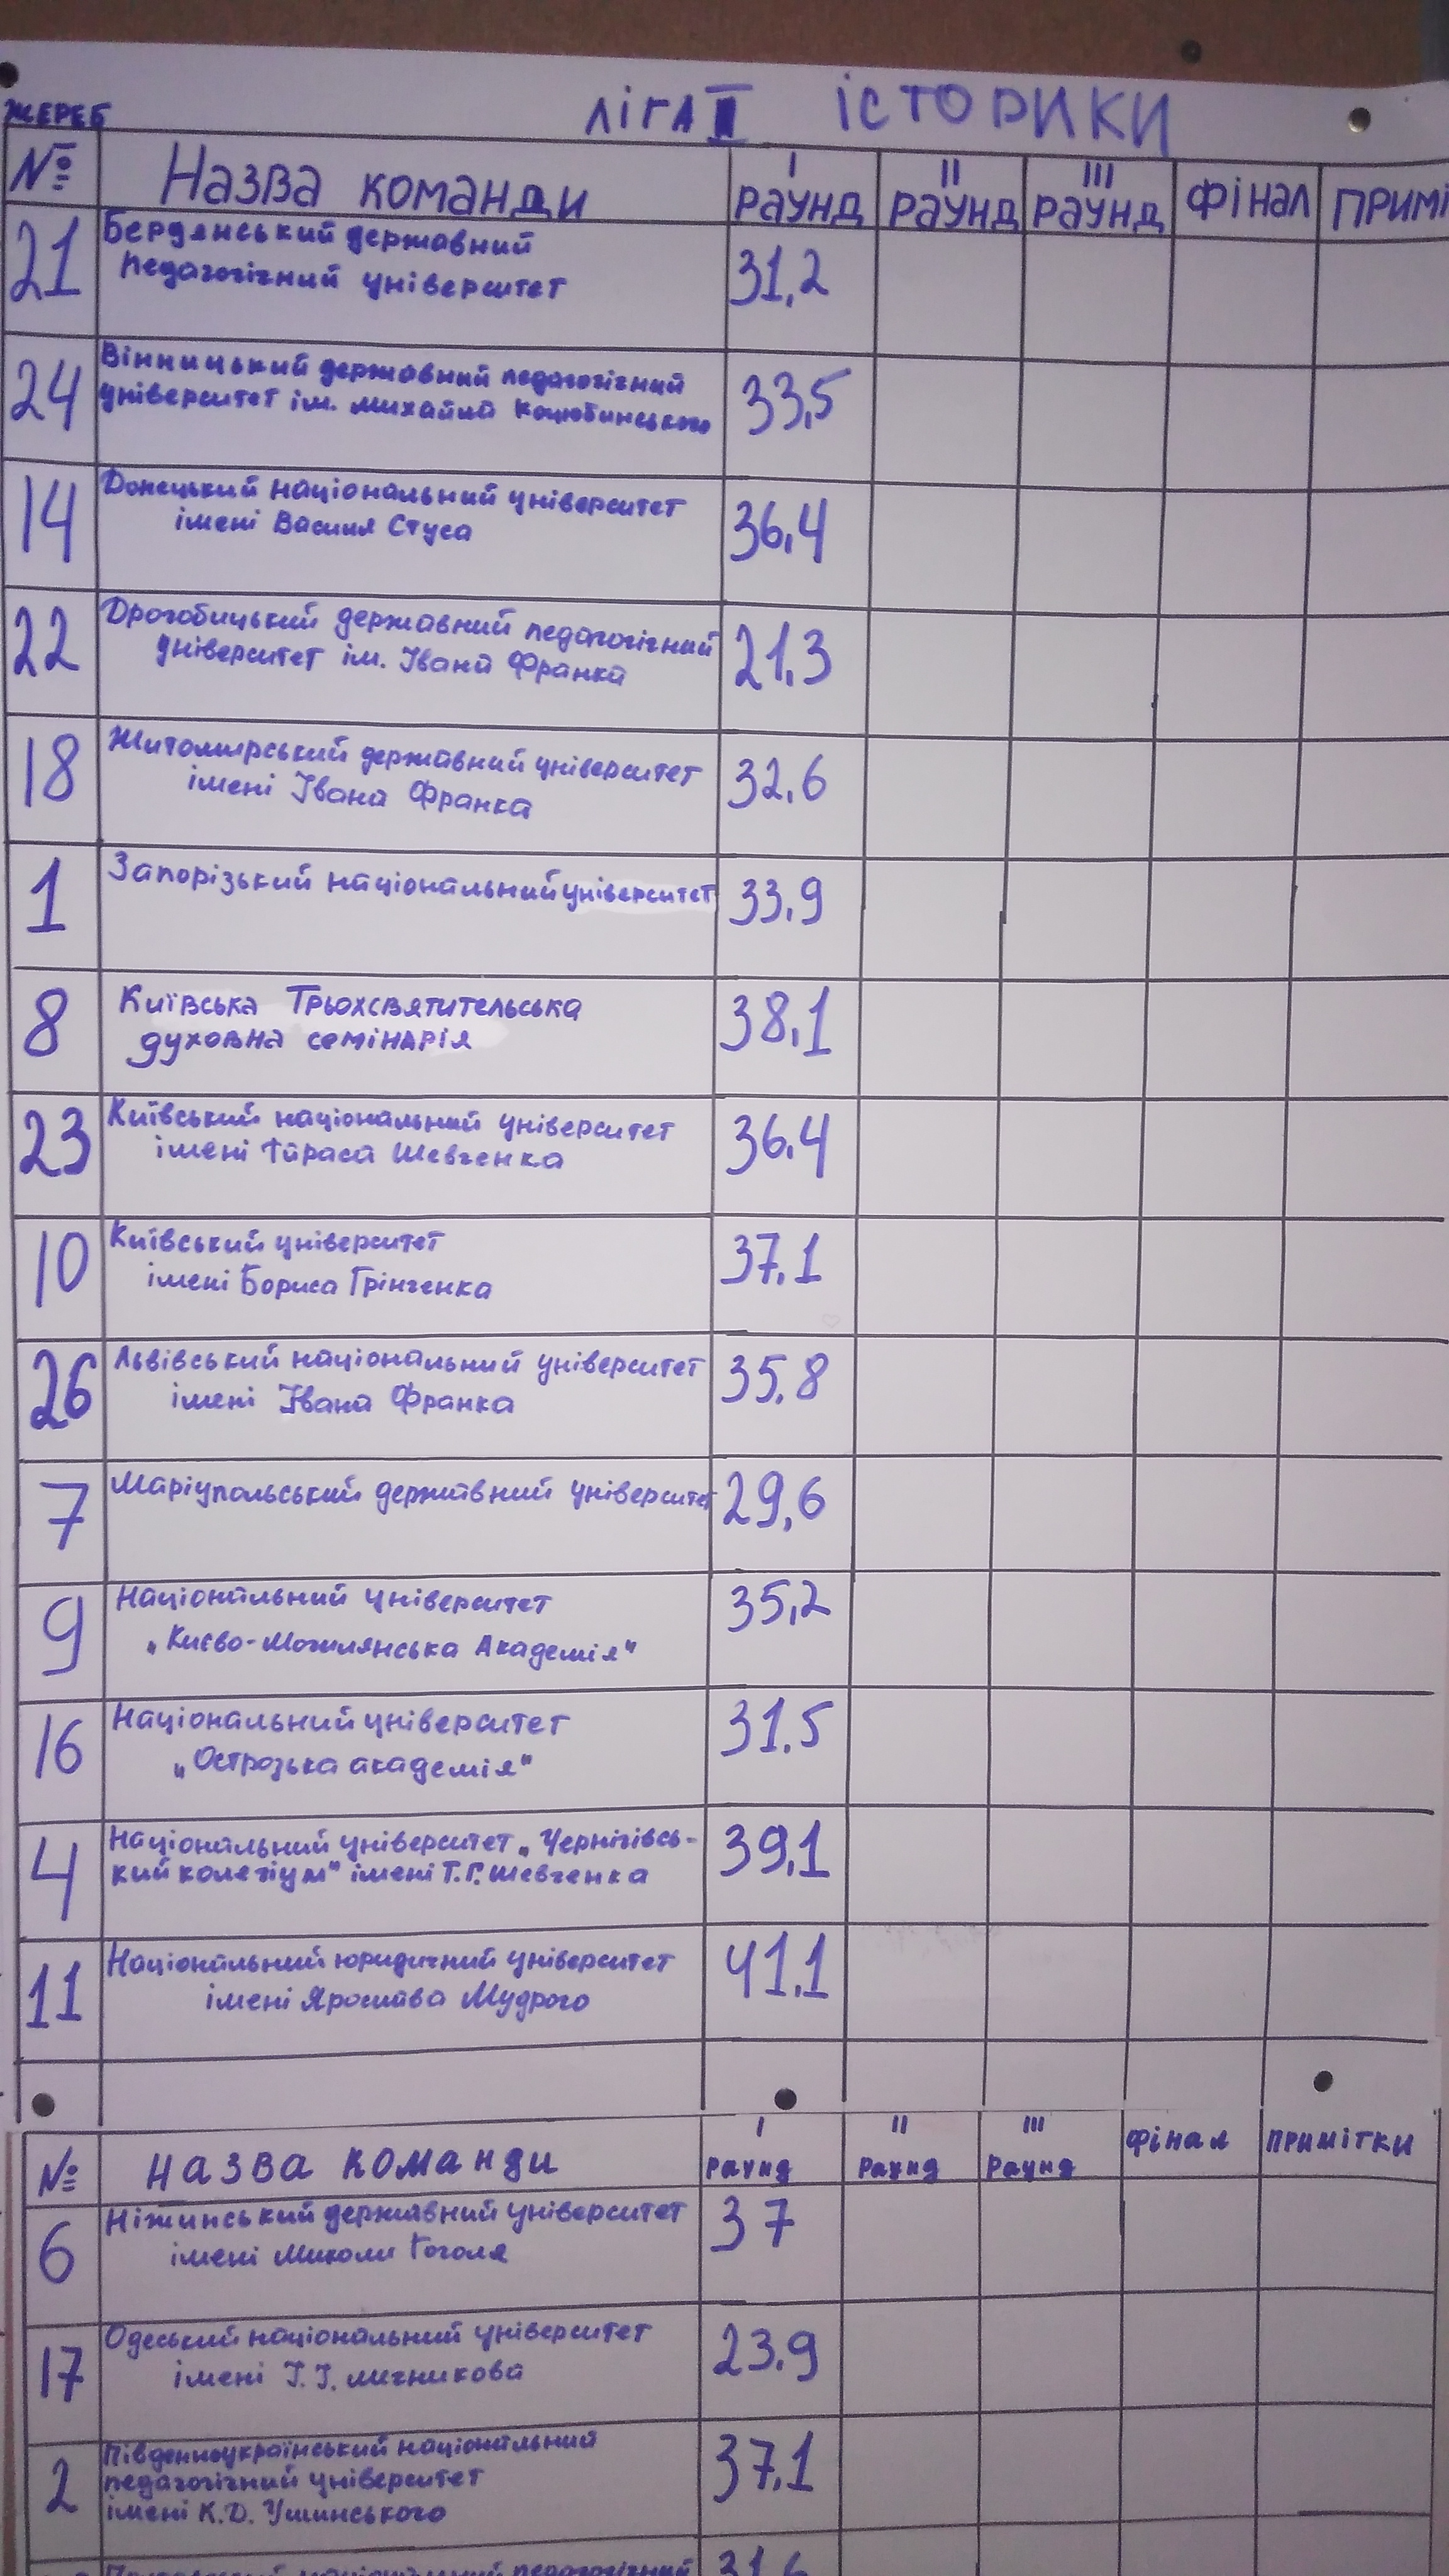 ЖЕРЕБ
ЛІГА II ІСТОРИКИ
№ Назва команди I раунд II раунд III раунд фінал приміт
21 Бердянський державний
педагогічний університет 31,2
24 Вінницький державний педагогічний
університет ім. Михайла Коцюбинського 33,5
14 Донецький національний університет
імені Василя Стуса 36,4
22 Дрогобицький державний педагогічний
університет ім. Івана Франка 21,3
18 Житомирський державний університет
імені Івана Франка 32,6
1 Запорізький національний університет 33.9
8 Київська Трьохсвятительська
духовна семінарія 38,1
23 Київський національний університет
імені Тараса Шевченка 36.4
10 Київський університет
імені Бориса Грінченка 37.1
26 Львівський національний університет
імені Івана Франка 35.8
7 Маріупольський державний університет 29,6
9 Національний університет
„Києво-Могилянська Академія" 35,2
16 Національний університет
„Острозька академія" 31.5
4 Національний університет „Чернігівсь-
кий колегіум" імені Т.Г. Шевченка 39,1
11 Національний юридичний університет
імені Ярослава Мудрого 41.1
№ Назва команди I раунд II раунд III раунд фінал примітки
6 Ніжинський державний університет
імені Миколи Гоголя 37
17 Одеський національний університет
імені І.І. Мечникова 23.9
2 Південноукраїнський національний
педагогічний університет
імені К.Д. Ушинського 37,1
національний педагогічний 31,6